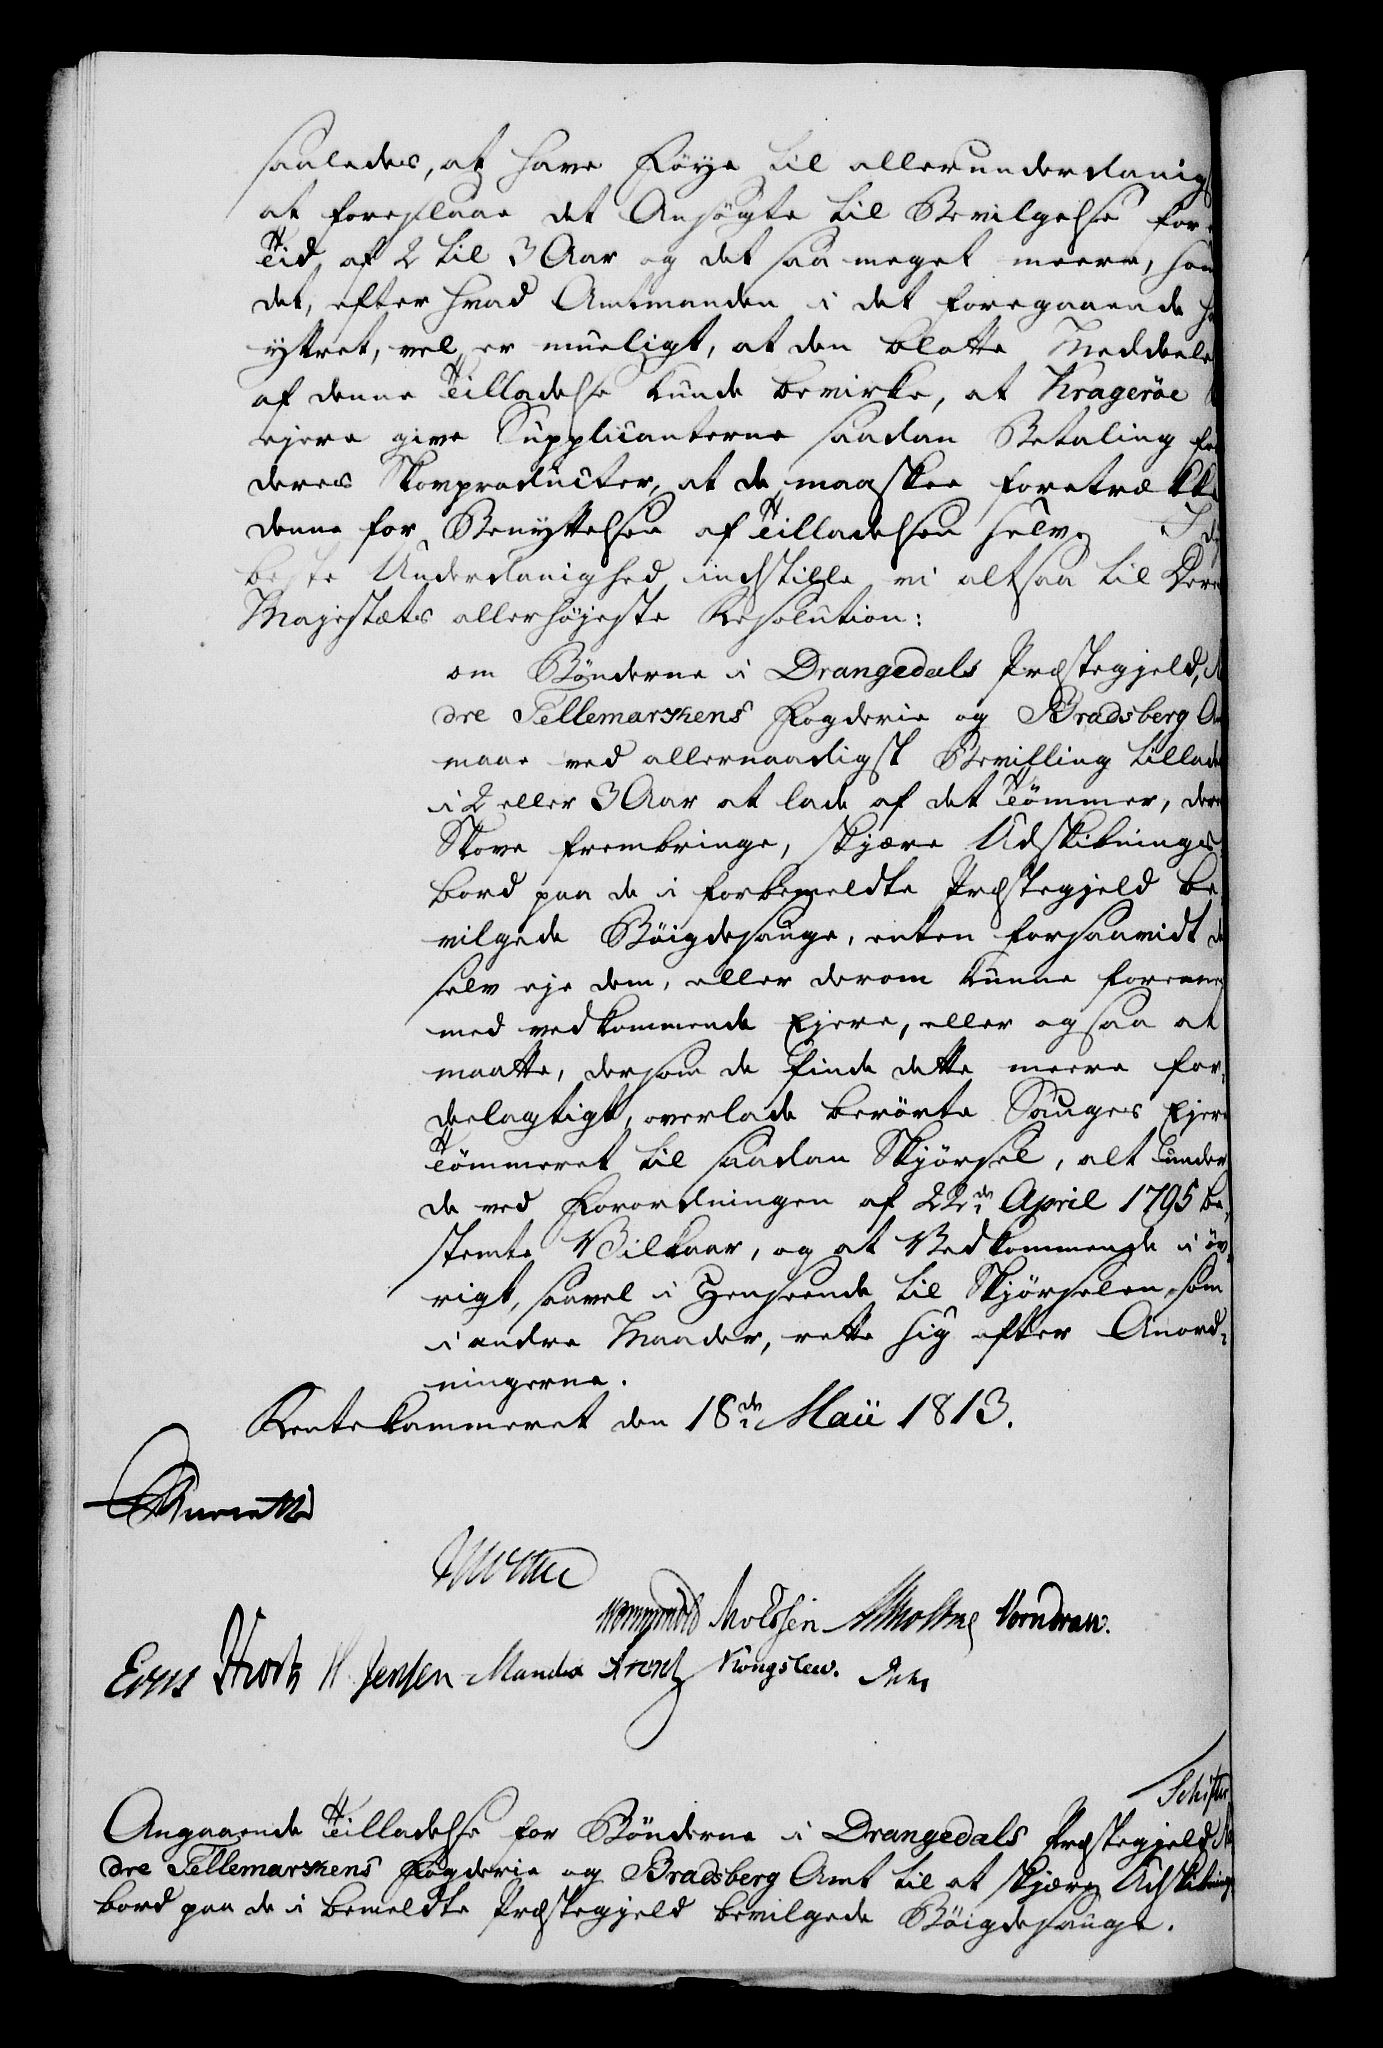 saaledes, at have Föye til allerunderdanigs
at foreslaae det Ansögte til Bevilgelse for
Tid af 2 til 3 Aar og det saa meget meere, som
det, efter hvad Amtmanden i det foregaaende
yttret, vel er mueligt, at den blotte Meddeele
af denne Tilladelse kunde bevirke, at Kragerøe
ejere give Supplicanterne saadan Betaling for
deres Skovproducter, at de maaskee foretrække
denne for Benyttelsen af Tilladelsen selv. I dy
beste Underdanighed indstille vi altsaa til Deres
Majestæts allerhöjeste Resolution:
om Bönderne i Drangedals Præstegjeld,
dre Tellemarkens Fogderie og Bradsberg
maae ved allernaadigst Bevilling tillade
i 2 eller 3 Aar at lade af det Tömmer, deres
Skove frembringe, skjære Udskibnings-
bord paa de i forbemeldte Præstegjeld be-
vilgede Böigdesauge, enten forsaavidt de
selv eje dem, eller derom kunne forene
med vedkommende Ejere, eller ogsaa at
maatte, dersom de finde dette meere for-
deelagtigt, overlade berörte Sauges Ejere
Tömmeret til saadan Skjörsel, alt under
de ved Forordningen af 22de April 1795 be-
stemte Vilkaar, og at Vedkommende i öv-
rigt, saavel i Henseende til Skjörselen som
i andre Maader, rette sig efter Anord-
ningerne.
Rentekammeret den 18de Maii 1813.
Wormskiold Knudsen Monrad
Hvort H. Jensen Manda Arentz Kongslew.
Angaaende Tilladelse for Bönderne i Drangedals Præstegjeld
dre Tellemarkens Fogderie og Bradsberg Amt til at skjære Udskibnings
bord paa de i bemeldte Præstegjeld bevilgede Böigdesauge.